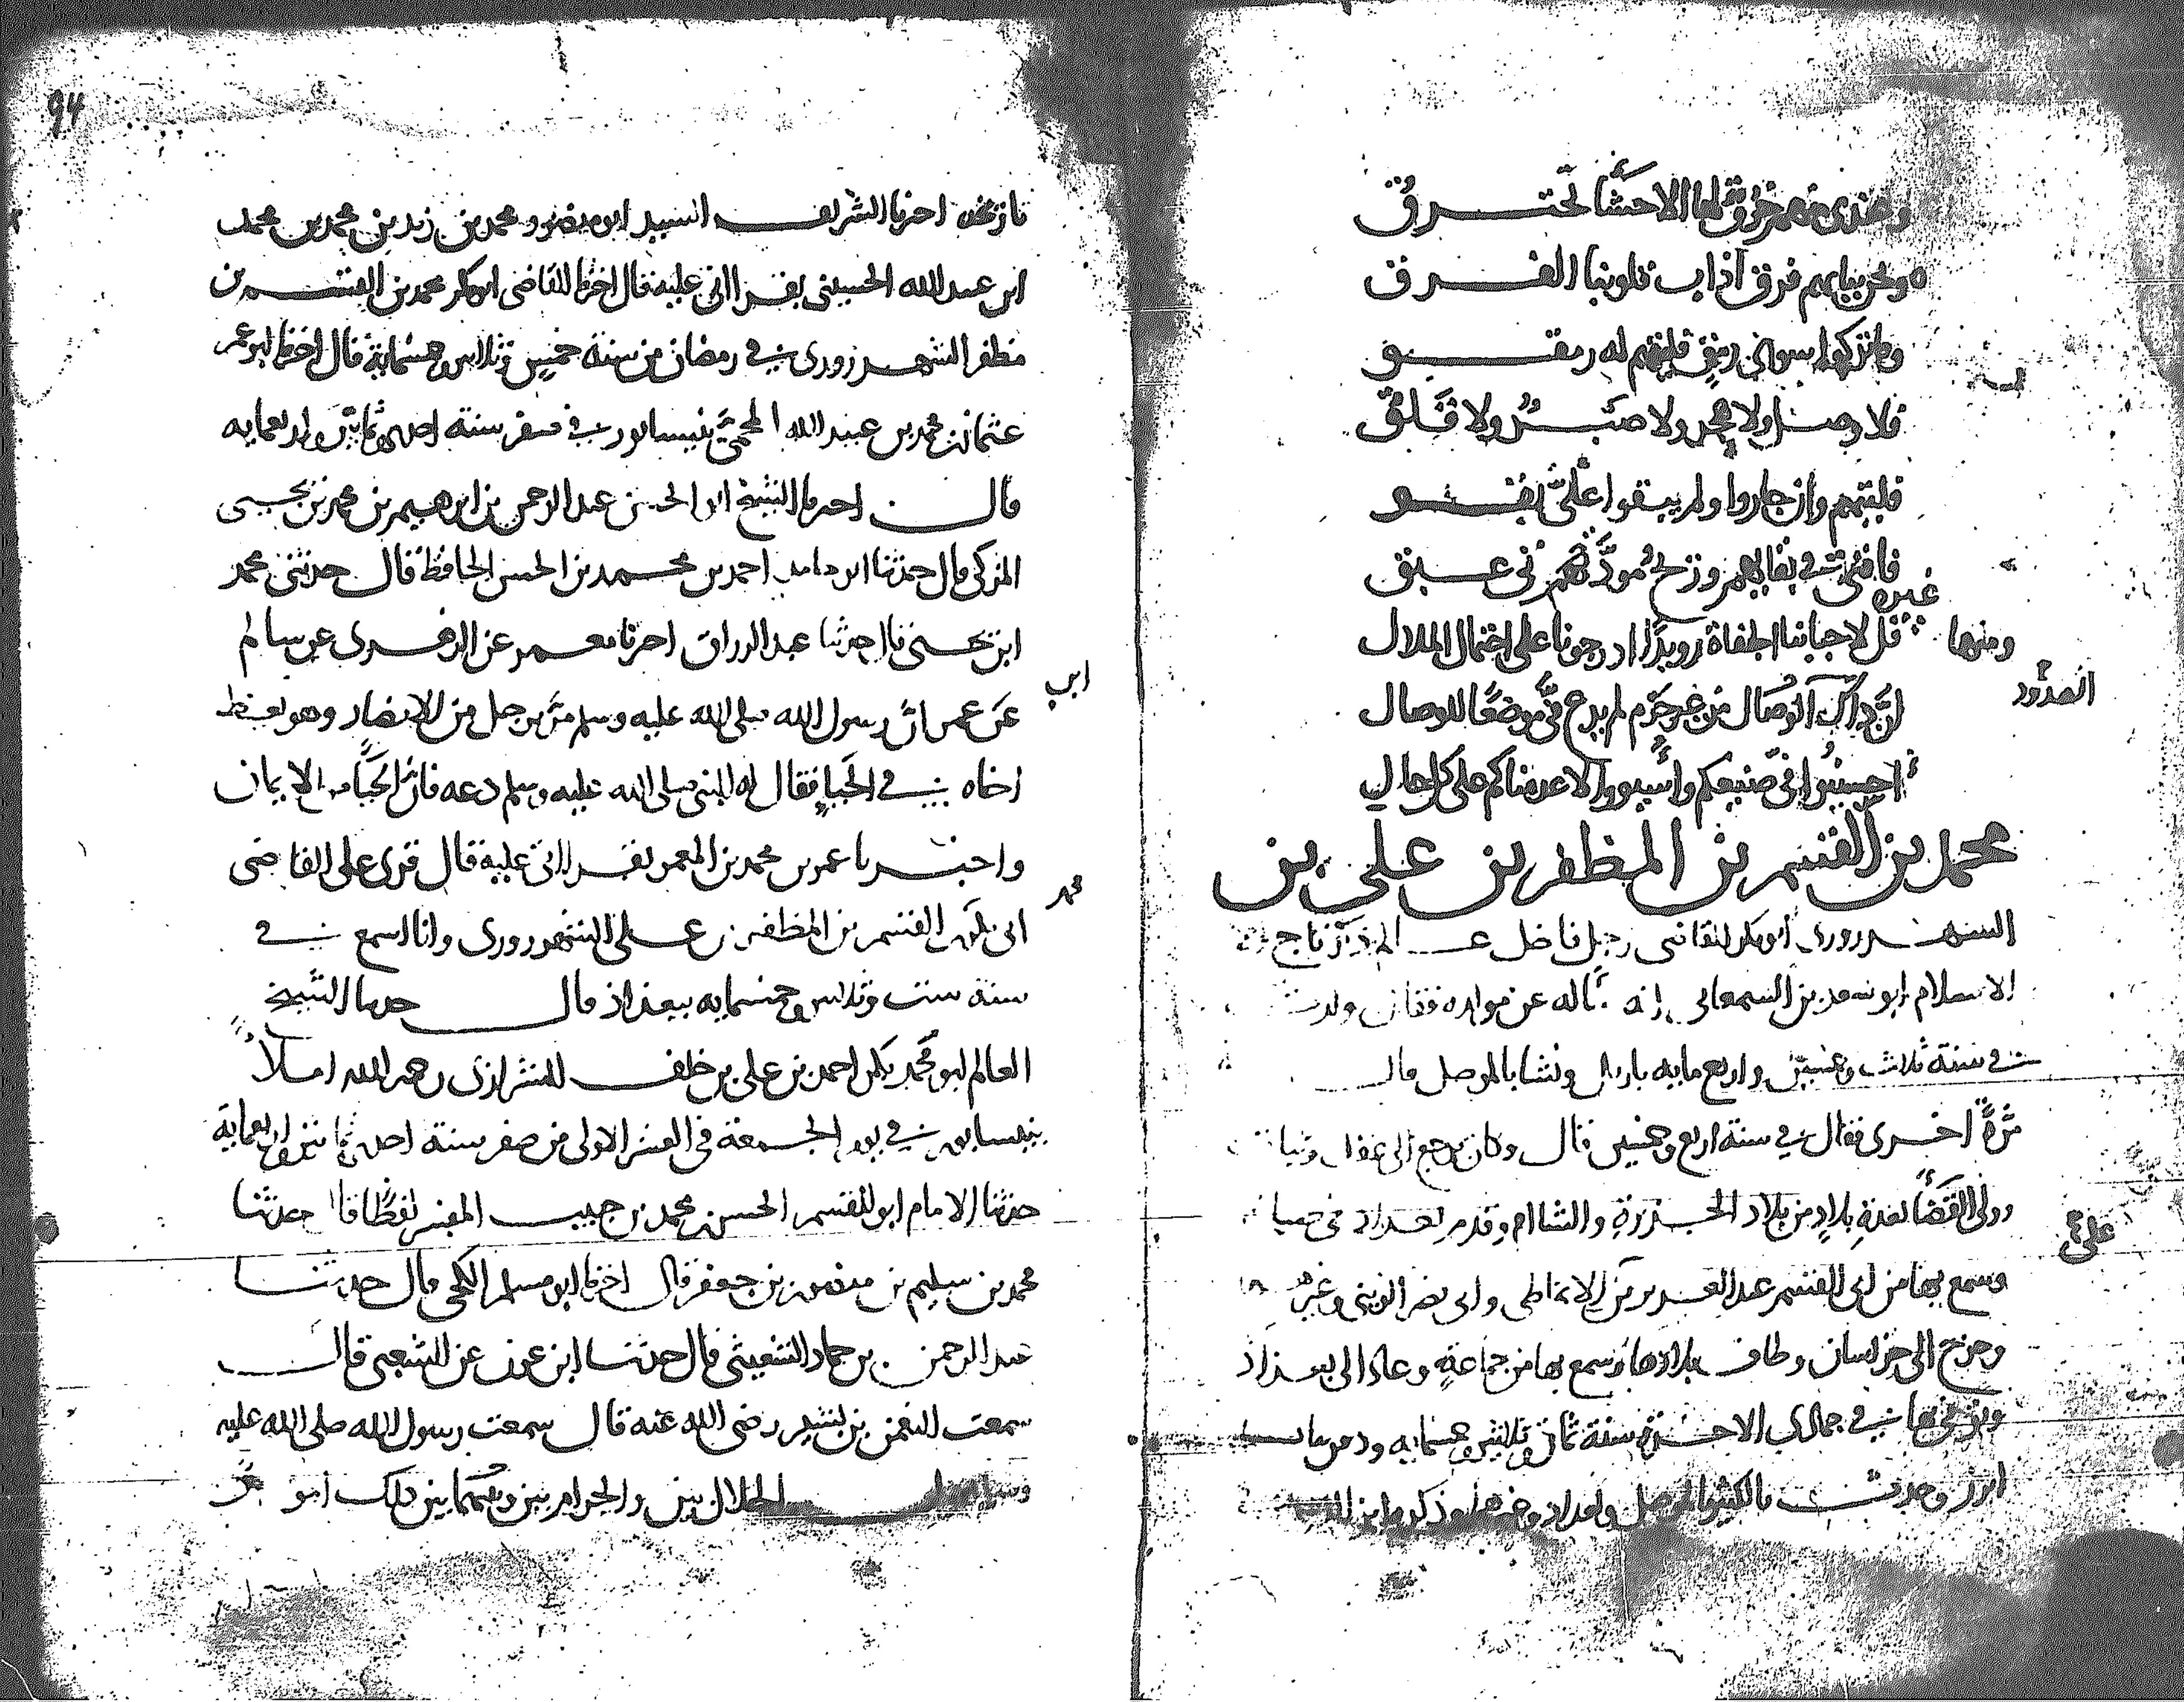 وهذي منهم حرق لها الاحشا تحترق
ونحن ببابهم فرق اذاب قلوبنا الفرق
وما تركوا سوى رمق فليتهم له رمقو
فلا وصل ولا هجر ولا صبر ولا قلق
فليتهم وان جاروا ولم يبقوا علي بقو
فافنى في بقايهم وريح مودتهم عبق
غيره
ومنها قل لاحبابنا الجفاة رويدا درجونا على احتمال الملال
الصدود
ان ذاك الوصال من غير جرم لم يدع في موضعا للوصال
احسنوا في صنيعكم واسيوا لا عدمناكم على كل حال
محمد بن القسم بن المظفر بن علي بن
الشهرزوري ابو بكر القاضي رجل فاضل تاج
الاسلام ابو سعد بن السمعاني انه سأله عن مولده فقال ولدت
في سنة ثلاث وخمسين واربع مايه باربل ونشا بالموصل قال
مرة اخرى فقال في سنة اربع وخمسين قال وكان يرجع الى
وولي القضا بعدة بلاد من بلاد الجزيرة والشام وقدم بغداد في
وسمع بها من ابي القسم عبد العزيز الانماطي وابي نصر الزينبي وغيرهما
وخرج الى خراسان وطاف بلادها وسمع بها من جماعة وعاد الى بغداذ
وتوفي بها في جمادى الاخرة سنة ثمان وثلثين وخمسمايه ودفن بباب
ابرز وحدث بالكثير بالموصل وبغداد وغيرهما وذكره ابن
على
94
اخبرنا الشريف السيد ابو منصور محمد بن زيد بن محمد بن محمد
ابن عبد الله الحسيني بقراتي عليه قال اخبرنا القاضي ابو بكر محمد بن القسم بن
مظفر الشهرزوري في رمضان من سنة خمس وثلاثين وخمسماية قال اخبرنا ابو عمر
عثمان بن محمد بن عبيد الله المحمي بنيسابور في صفر سنة احدى وثمانين واربعمايه
قال اخبرنا الشيخ ابو الحسن عبد الرحمن بن ابرهيم بن محمد بن يحيى
المزكي قال حدثنا ابو حامد احمد بن محمد بن الحسن الحافظ قال حدثني محمد
ابن يحيى نا حدثنا عبد الرزاق اخبرنا معمر عن الزهري عن سالم
ابن
عن عمر ان رسول الله صلى الله عليه وسلم مر برجل من الانصار وهو يعظ
اخاه في الحيا فقال له النبي صلى الله عليه وسلم دعه فان الحيا من الايمان
واخبرنا عمر بن محمد بن المعمر بقراتي عليه قال قرى على القاضي
محمد
ابي بكر بن القسم بن المظفر بن علي الشهرزوري وانا اسمع في
سنة ست وثلاثين وخمسمايه ببغداذ قال حدثنا الشيخ
العالم ابو محمد بكر احمد بن علي بن خلف الشيرازي رحمه الله املا
بنيسابور في يوم الجمعة في العشر الاولى من صفر سنة احدى وثمانين واربعماية
حدثنا الامام ابو القسم الحسن بن محمد بن حبيب المفسر لفظا قال حدثنا
محمد بن سليم بن منصور بن جعفر قال اخبرنا ابو مسلم الكجي قال حدثنا
عبد الرحمن بن حماد الشعيثي قال حدثنا ابن عون عن الشعبي قال
سمعت النعمن بن بشير رضي الله عنه قال سمعت رسول الله صلى الله عليه
وسلم الحلال بين والحرام بين وبينهما بين ذلك امور